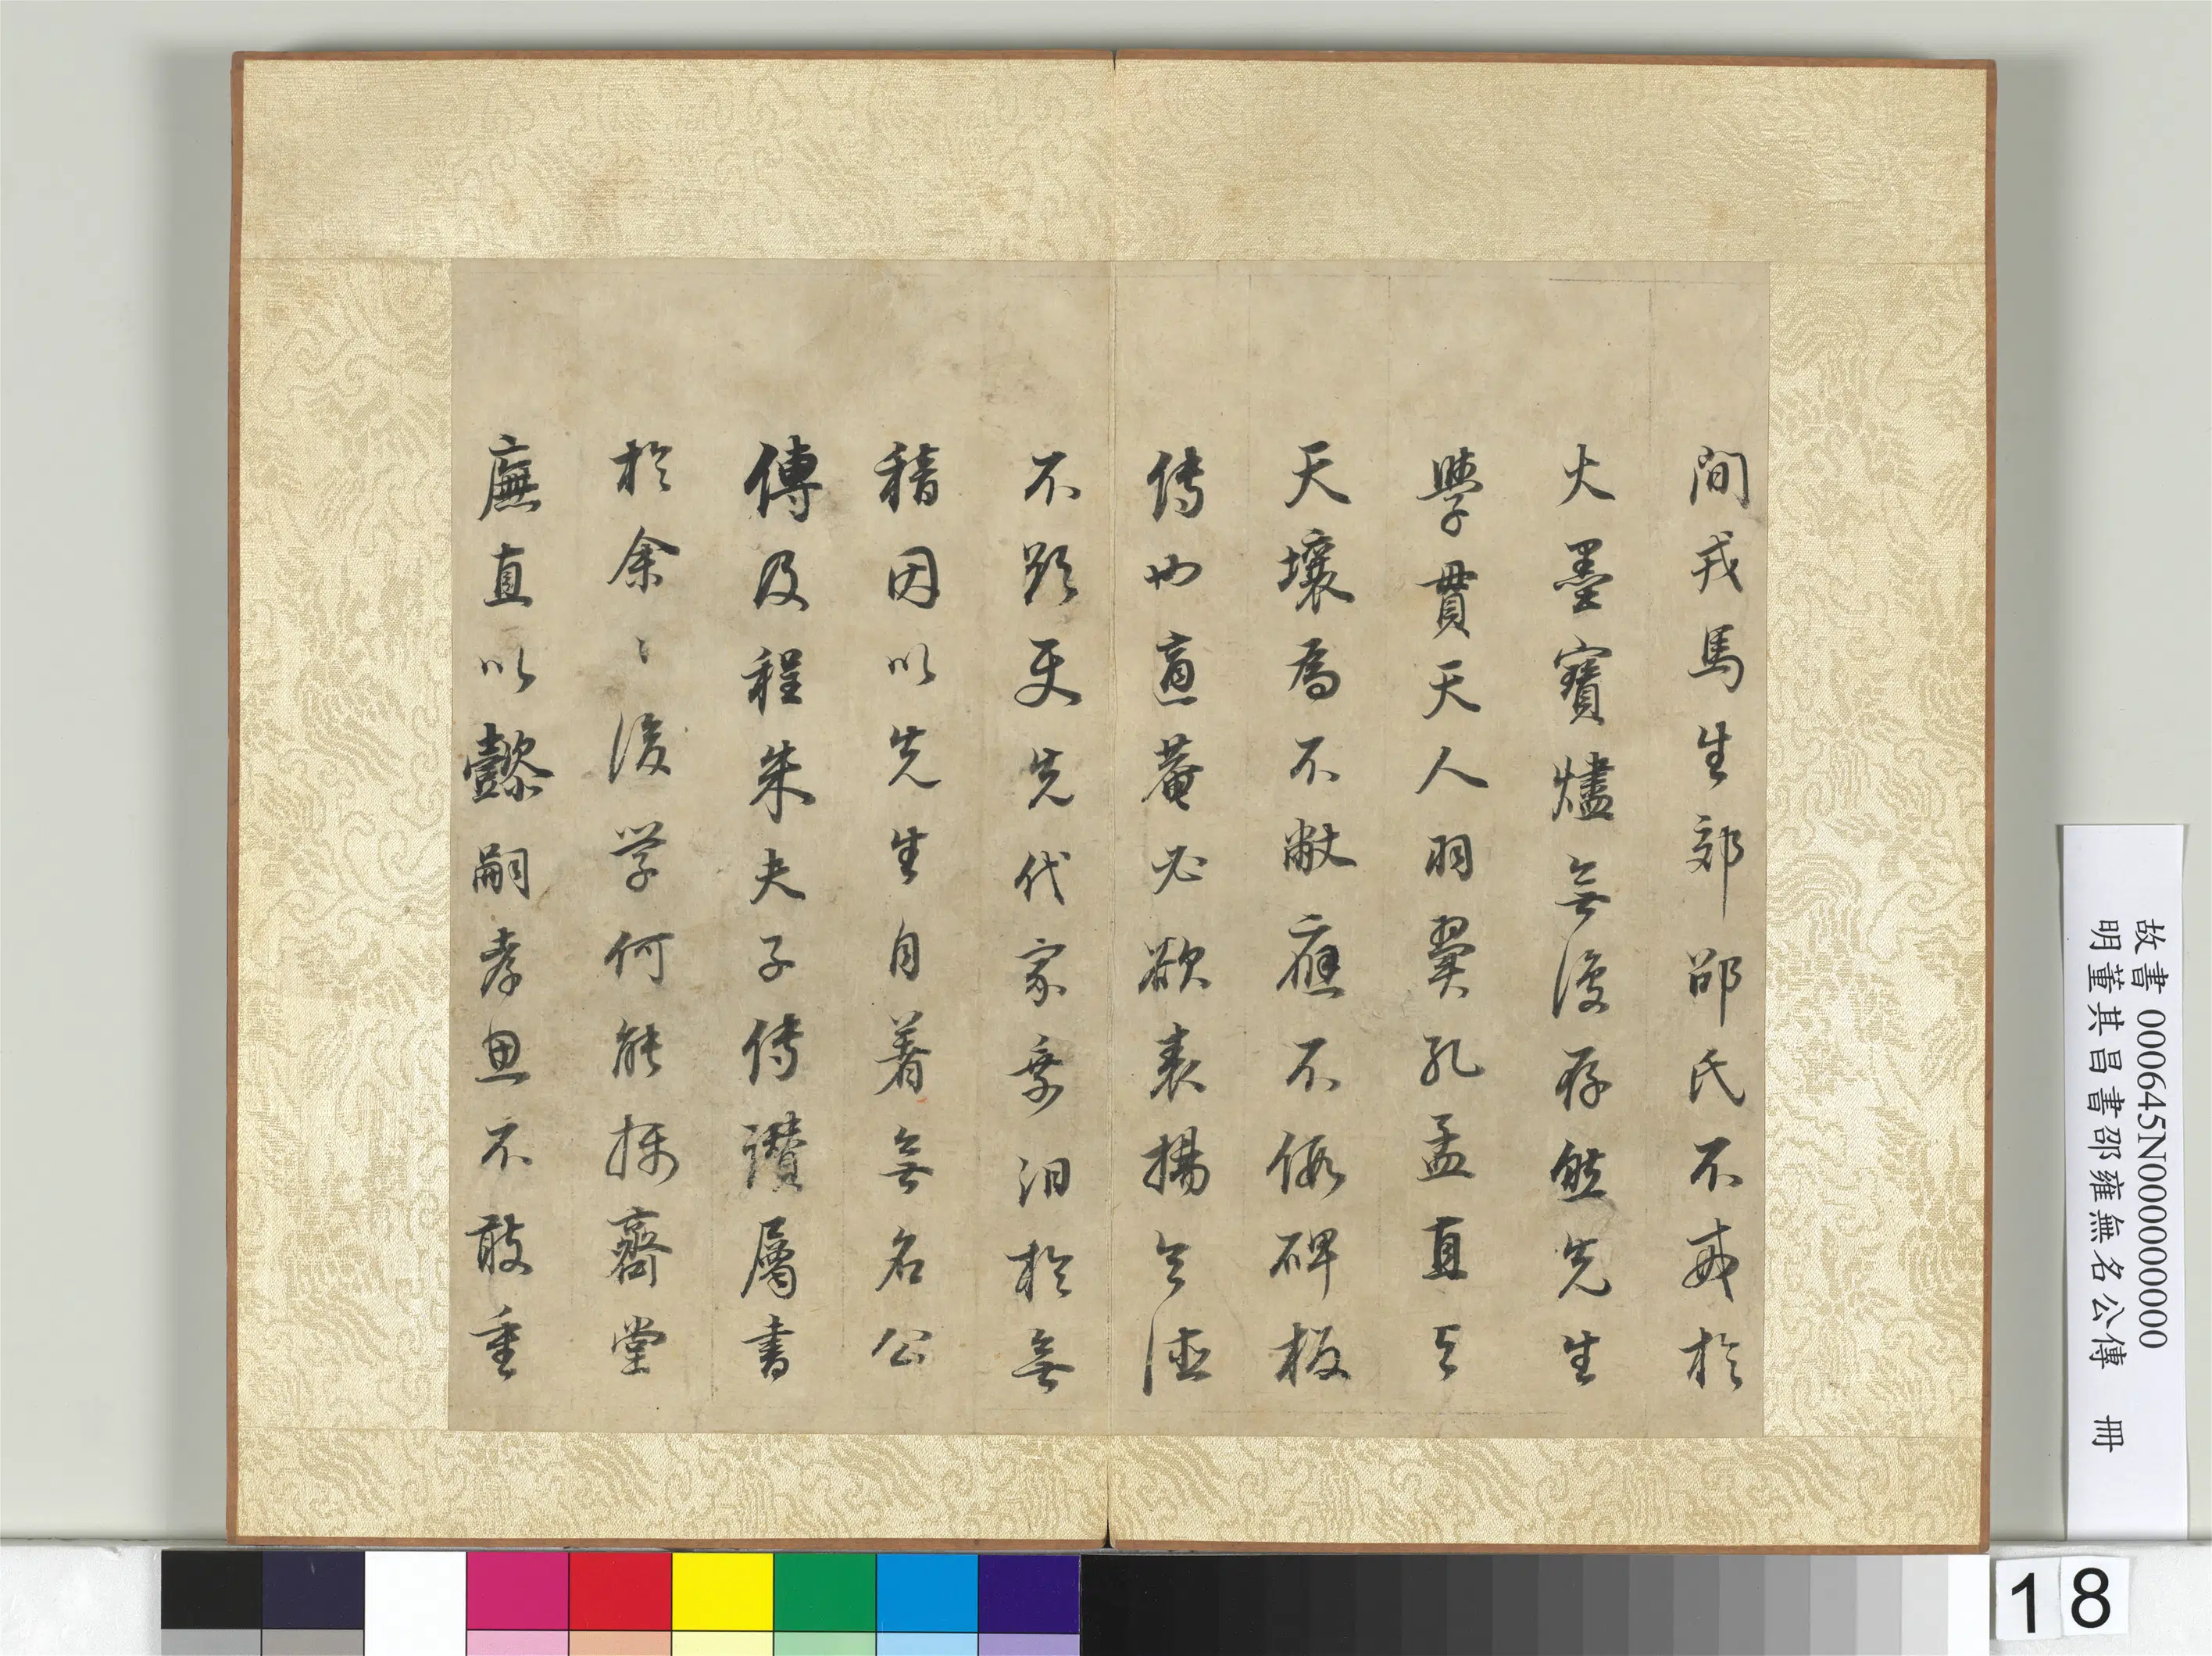 間戎馬生郊邵氏不戒於
火墨寶燼無復存然先生
學貫天人羽翼孔孟直与
天壤為不敝應不假碑板
传也適菴必欲表揚令德
不欲更先代家乘汩於無
稽因以先生自著無名公
傳及程朱夫子传讚屬書
於余〻後学何能揚齋堂
廡直以懿嗣孝思不敢重
故書000645N000000000
明董其昌書邵雍無名公傳 冊
18